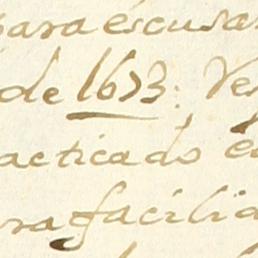 para escusa
de 1673; Ve
acticado e
ra facilia